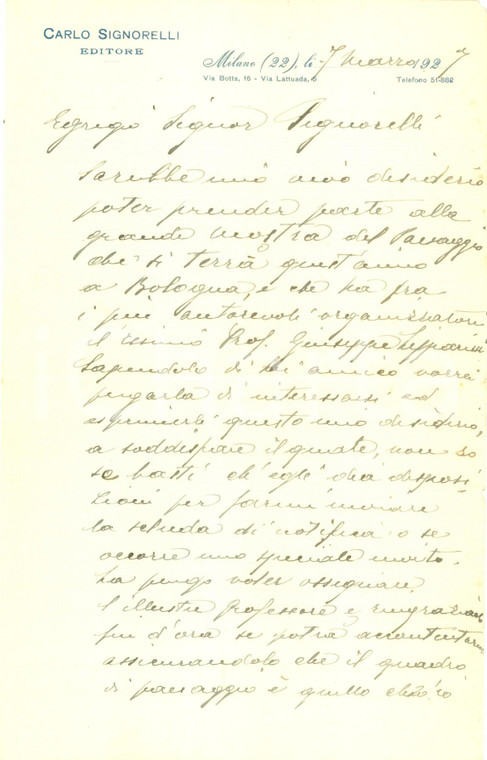 CARLO SIGNORELLI
EDITORE
Milano (22), li 7 Marzo 1927
Via Botta, 16 - Via Lattuada,
Telefono 51-882
Egregio Signor Signorelli
Sarebbe mio vivo desiderio
poter prender parte alla
grande Mostra del Paesaggio
che si terrà quest'anno
a Bologna, e che ha fra
i più autorevoli organizzatori
il Prof. Giuseppe Lipparini
Sapendolo di lei amico vorrei
pregarla di interessarsi ed
esprimerli questo mio desiderio,
a soddisfare il quale, non so
se basti ch'egli dia disposi
zioni per farmi inviare
la scheda di notifica o se
occorre uno speciale invito.
La prego voler ossequiare
l'illustre Professore e ringraziarlo
fin d'ora se potrà accontentarmi
assicurandolo che il quadro
di paesaggio è quello